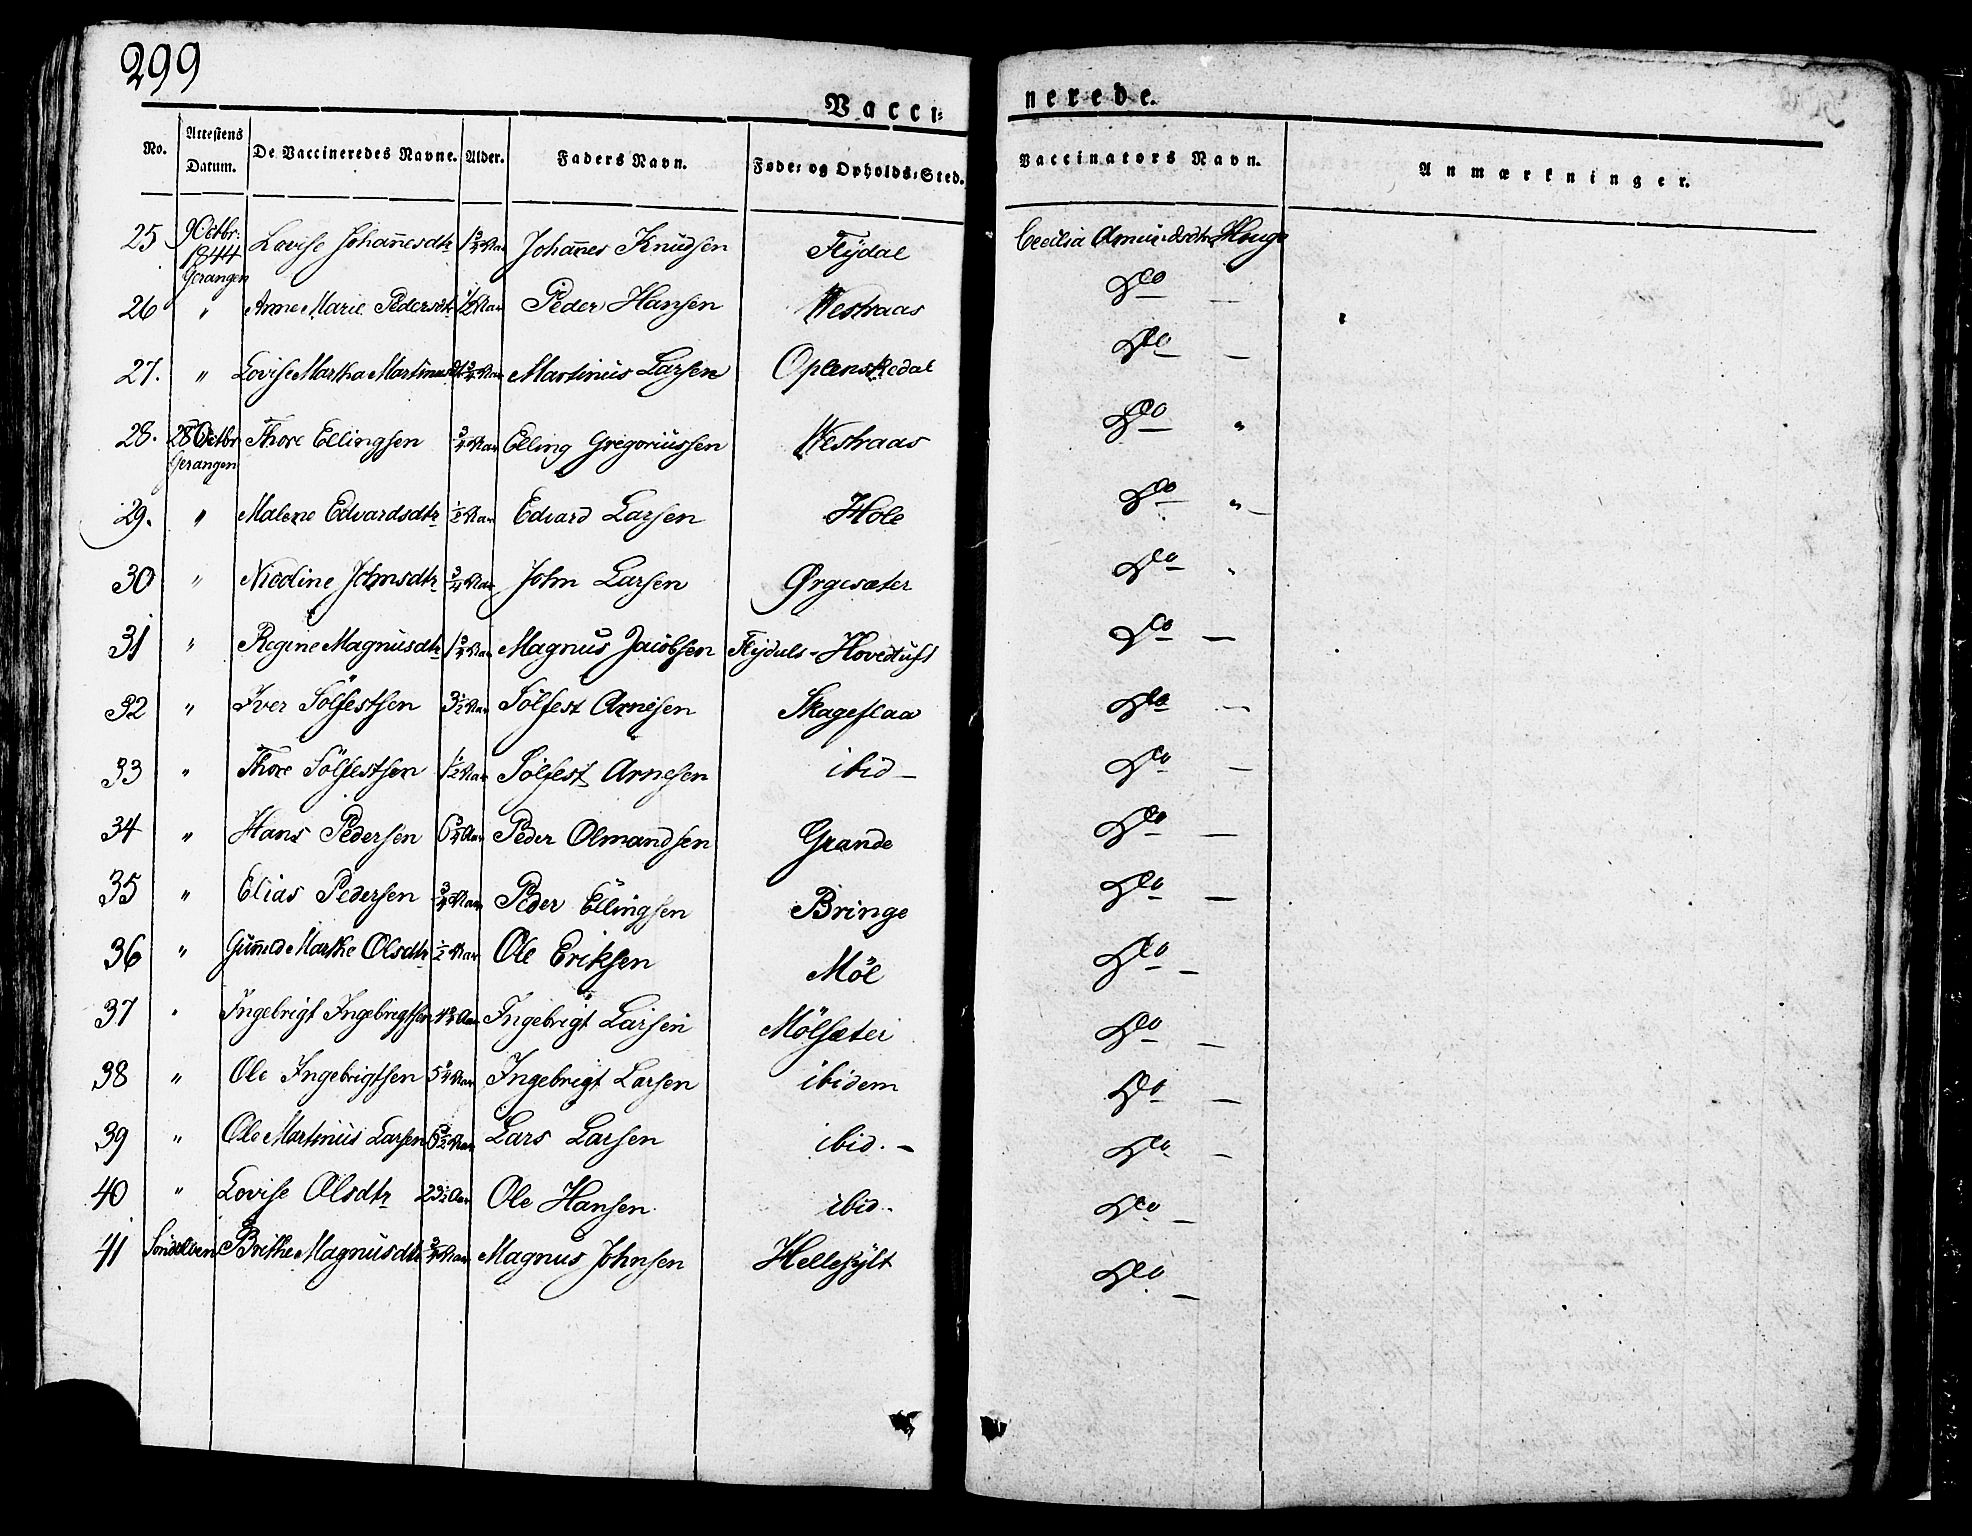 299
Vacci=
nerede.
No. | Attestens Datum. | De Vaccineredes Navne. | Alder. | Faders Navn. | Føde= og Opholds=Sted. | Vaccinators Navn. | Anmærkninger.
25 | 9 Octbr: 1844 Gerangen | Lovise Johañesdtr | Aar | Johañes Knudsen | Flydal | Cecilia Amundsdtr Houge
26 | " | Anne Marie Pedersdtr | 1/2 Aar | Peder Hansen | Westraas | Do —
27. | " | Lovise Martha Martinusdtr | Aar | Martinus Larsen | Oplenskedal | Do —
28. | 28 Octbr Gerangen | Thore Ellingsen | 3/4 Aar | Elling Gregoriussen | Westraas | Do "
29. | " | Malene Edvardsdtr | 1/2 Aar | Edvard Larsen | Hole | Do "
30 | " | Nicoline Johnsdtr | 3/4 Aar | John Larsen | Ørgesæter | Do "
31 | " | Regine Magnusdtr | Aar | Magnus Jacobsen | Flydals-Hovedtuft | Do —
32 | " | Iver Sölfestsen | 3 1/2 Aar | Sölfest Arnesen | Skageflaa | Do —
33 | " | Thore Sölfestsen | 1 1/2 Aar | Sölfest Arnesen | ibid — | Do —
34 | " | Hans Pedersen | Aar | Peder Olmandsen | Grande | Do —
35 | " | Elias Pedersen | 3/4 Aar | Peder Ellingsen | Bringe | Do —
36 | " | Guñild Marthe Olsdtr | 1/2 Aar | Ole Eriksen | Möl | Do —
37 | " | Ingebrigt Ingebrigtsen | Aar | Ingebrigt Larsen | Mölsæter | Do —
38 | " | Ole Ingebrigtsen | 5 3/4 Aar | Ingebrigt Larsen | ibidem | Do —
39 | " | Ole Martinus Larsen | Aar | Lars Larsen | ibid. — | Do —
40 | " | Lovise Olsdtr | 23 1/2 Aar | Ole Hansen | ibid. | Do —
41 | Söndelven | Brithe Magnusdtr | 3/4 Aar | Magnus Johnsen | Hellesylt | Do —